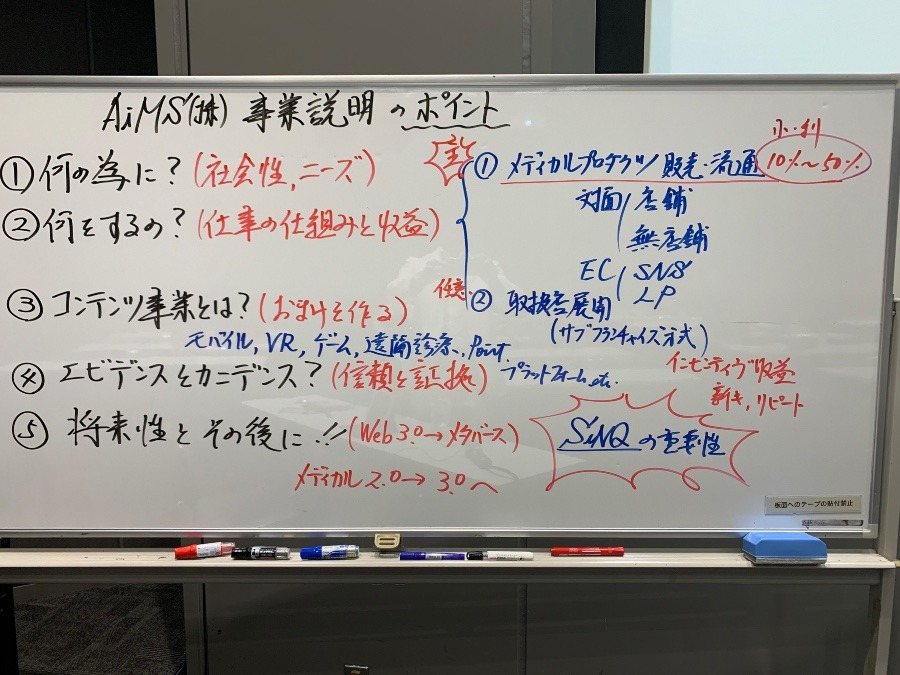 AiMS(株) 事業説明のポイント
① 何の為に？(社会性,ニーズ)
② 何をするの？(仕事の仕組みと収益)
③ コンテンツ事業とは？(おまけを作る)
モバイル,VR,ゲーム,遠隔診療,Point,
プラットフォーム etc.
④ エビデンスとカニデンス？(信頼と証拠)
⑤ 将来性とその後に!!(Web3.0→メタバース)
メディカル2.0→3.0へ
① メディカルプロダクツ 販売・流通
小・利
10%〜50%
対面/店舗
無店舗
EC/SNS
LP
任意
② 取扱店展開
(サブフランチャイズ方式)
インセンティブ収益
新き,リピート
SiNQの重要性
板面へのテープの貼付禁止